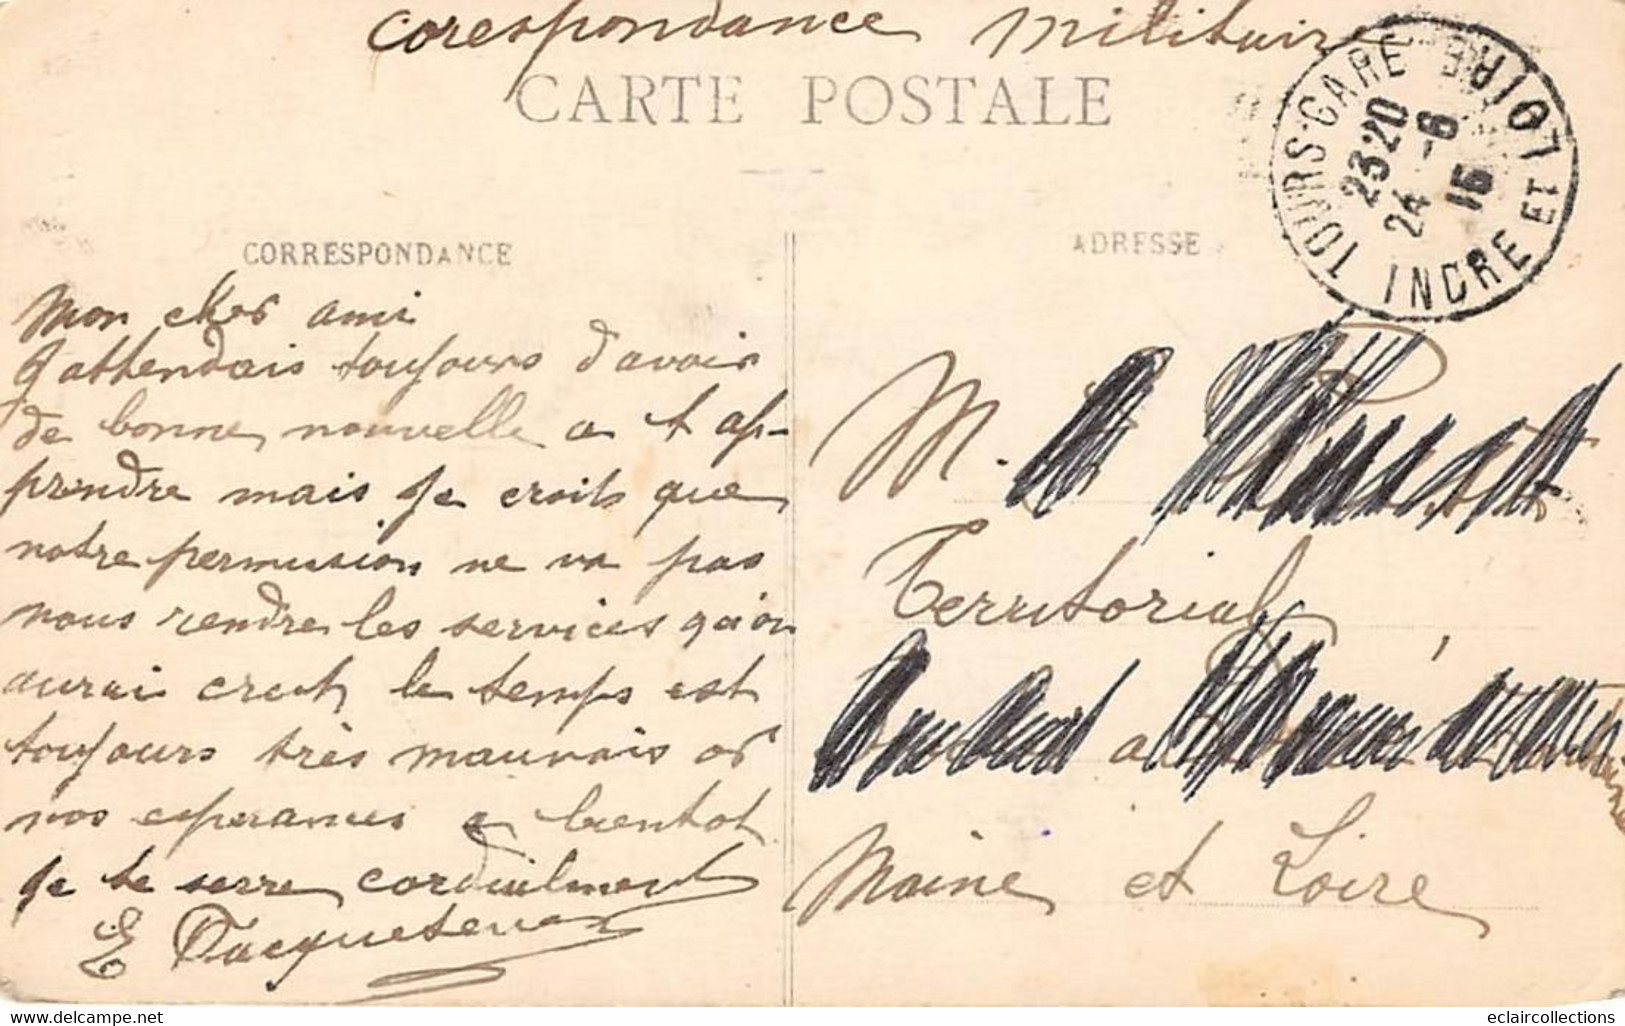 corespondance militair
CARTE POSTALE
TOURS-GARE INDRE ET LOIRE
2320
24 -6
15
CORRESPONDANCE
ADRESSE
mon cher ami
J attendais toujours d avoir
de bonne nouvelle a t ap-
prendre mais je croits que
notre permission ne va pas
nous rendre les services qu on
aurai creut le temps est
toujours très mauvais or
nos esperances a bientot
je te serre cordialment
E
M.
Territorial
a
Maine et Loire
eclaircollections
www.delcampe.net